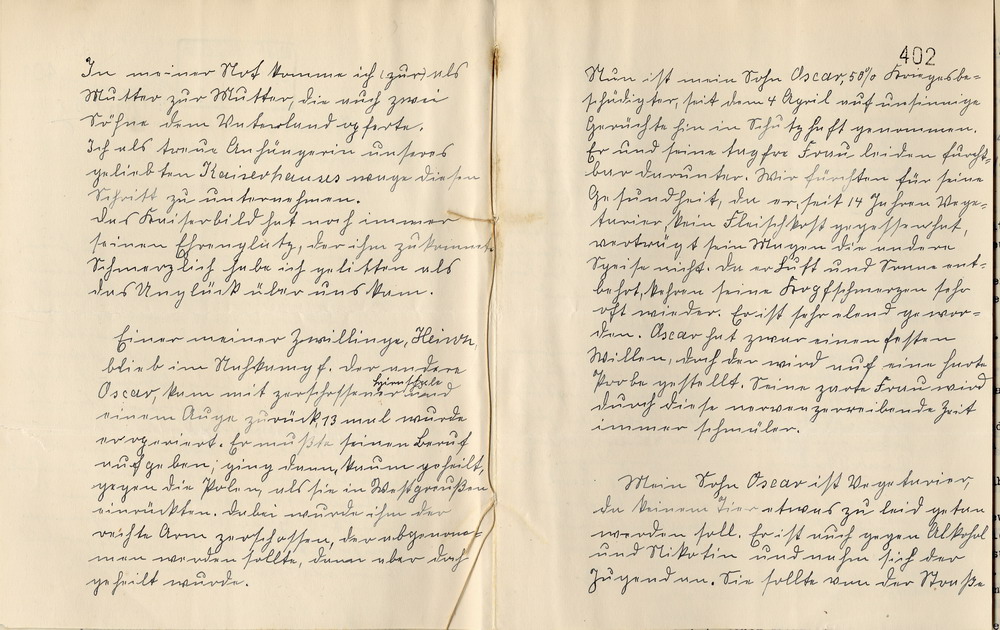 In meiner Not komme ich (zur) als
Mutter zur Mutter, die auch zwei
Söhne dem Vaterland opferte.
Ich als treue Anhängerin unseres
geliebten Kaiserhauses wage diesen
Schritt zu unternehmen.
Das Kaiserbild hat noch immer
seinen Ehrenplatz, der ihm zukommt.
Schmerzlich habe ich gelitten als
das Unglück über uns kam.
Einer meiner Zwillinge, Heinr.
blieb im Nahkampf. Der andere
Oscar, kam mit zerschossener Hirnschale und
einem Auge zurück, 13 mal wurde
er operiert. Er mußte seinen Beruf
aufgeben; ging dann, kaum geheilt,
gegen die Polen, als sie in Westpreußen
einrückten. Dabei wurde ihm der
rechte Arm zerschossen, der abgenom-
men werden sollte, dann aber doch
geheilt wurde.
402
Nun ist mein Sohn Oscar, 50% Kriegesbe-
schädigter, seit dem 4 April auf unsinnige
Gerüchte hin in Schutzhaft genommen.
Er und seine tapfre Frau leiden furcht-
bar darunter. Wir fürchten für seine
Gesundheit, da er, seit 14 Jahren Vege-
tarier, kein Fleischkost gegessen hat,
verträgt sein Magen die andere
Speise nicht. Da er Luft und Sonne ent-
behrt, kehren seine Kopfschmerzen sehr
oft wieder. Er ist sehr elend gewor-
den. Oscar hat zwar einen festen
Willen, doch der wird auf eine harte
Probe gestellt. Seine zarte Frau wird
durch diese nervenzerreibende Zeit
immer schmäler.
Mein Sohn Oscar ist Vegetarier,
da keinem Tier etwas zu leid getan
werden soll. Er ist auch gegen Alkohol
und Nikotin und nahm sich der
Jugend an. Sie sollte von der Straße